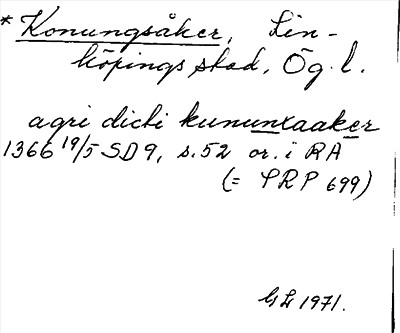 * Konungsåker, Lin-
köpings stad, Ög. l.
agri dicti kununxaaker
1366 19/5 SD 9, s. 52 or. i RA
(= PRP 699)
GL 1971.